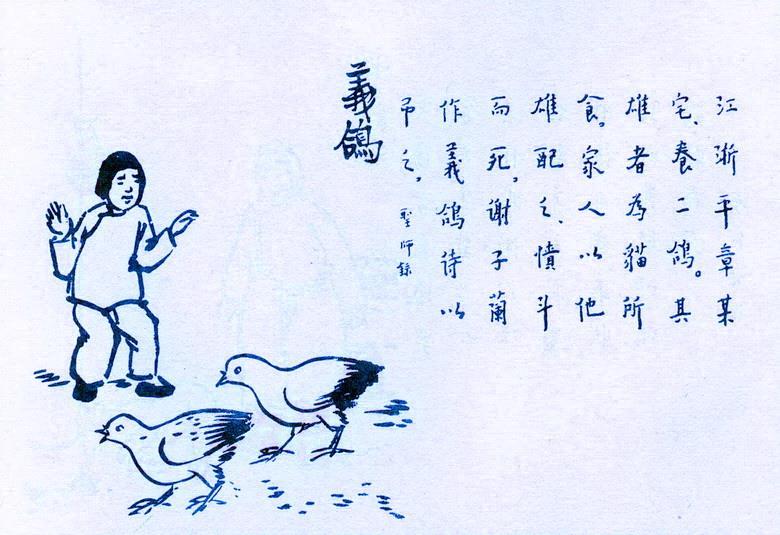 義鴿
江浙平章某
宅、養二鴿。其
雄者為貓所
食。家人以他
雄配之、憤斗
而死。謝子蘭
作義鴿待以
弔之。
聖師錄